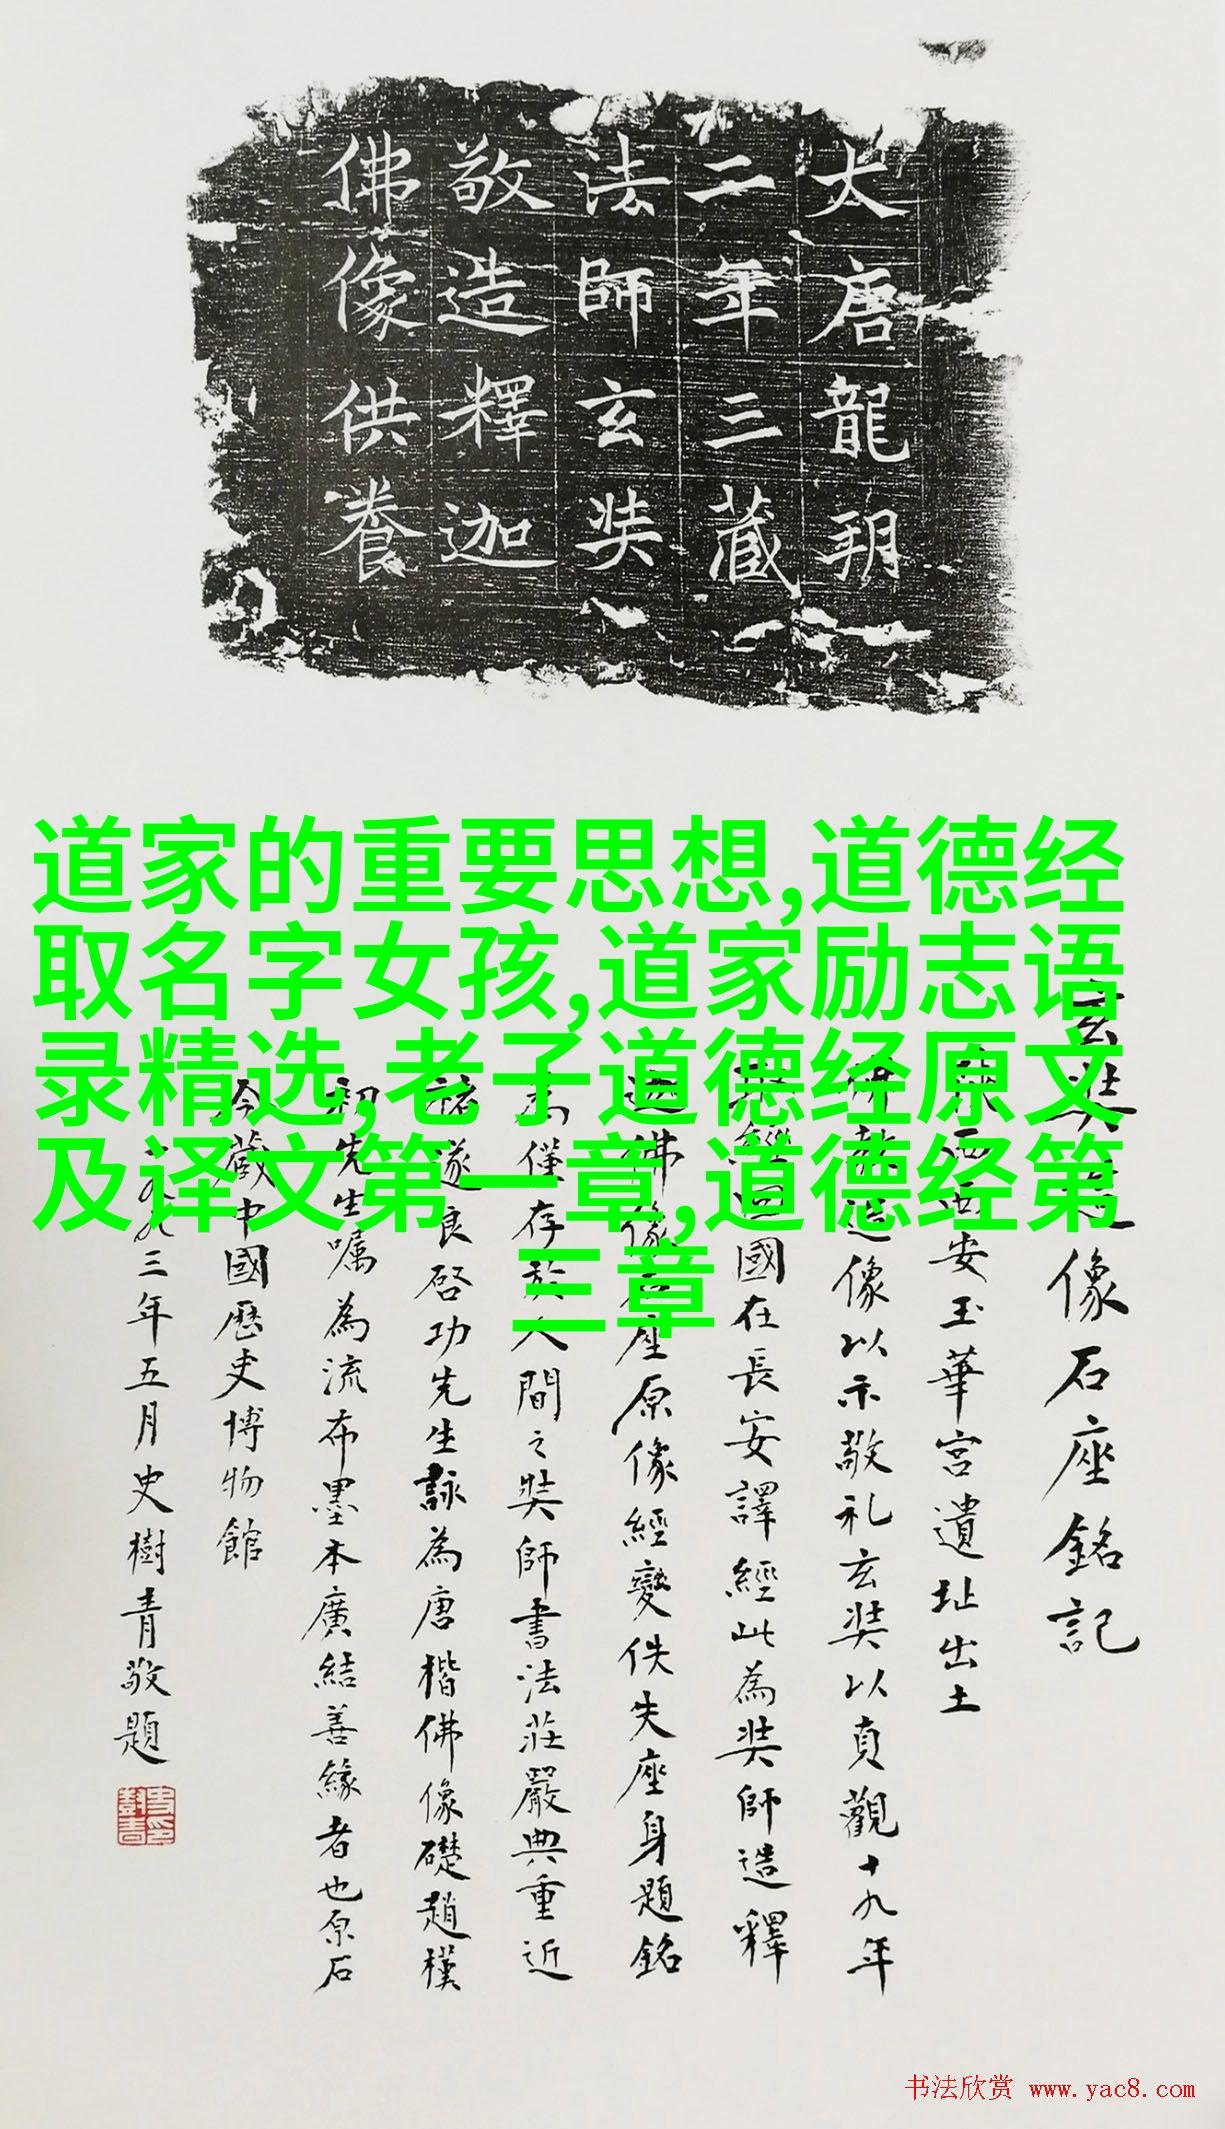 大唐龍朔
二年三藏
法師玄奘
敬造釋迦
佛像供養
道家的重要思想,道德经
取名字女孩,道家励志语
录精选,老子道德经原文
及译文第一章,道德经第
三章
玄奘造像石座銘記
西安玉華宮遺址出土
造像以示敬礼玄奘以貞觀十九年
經回國在長安譯經此為奘師造釋
迦佛像石座原像經變佚失座身題銘
為僅存於人間之奘師書法莊嚴典重近
褚遂良启功先生詠為唐楷佛像礎趙樸
初先生嘱為流布墨本廣結善緣者也原石
今藏中國歷史博物館
一九九三年五月史樹青敬題
书法欣赏 www.yac8.com